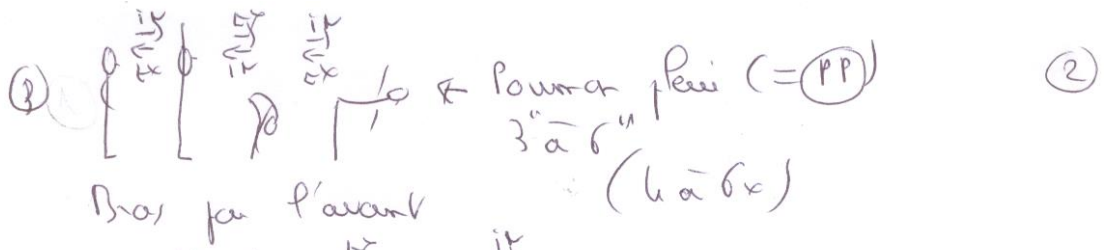 ir er ir
③ ex ir ex ← Poumon plein (= PP) ②
3" à 6"
(4 à 6x)
Bras par l'avant
ir